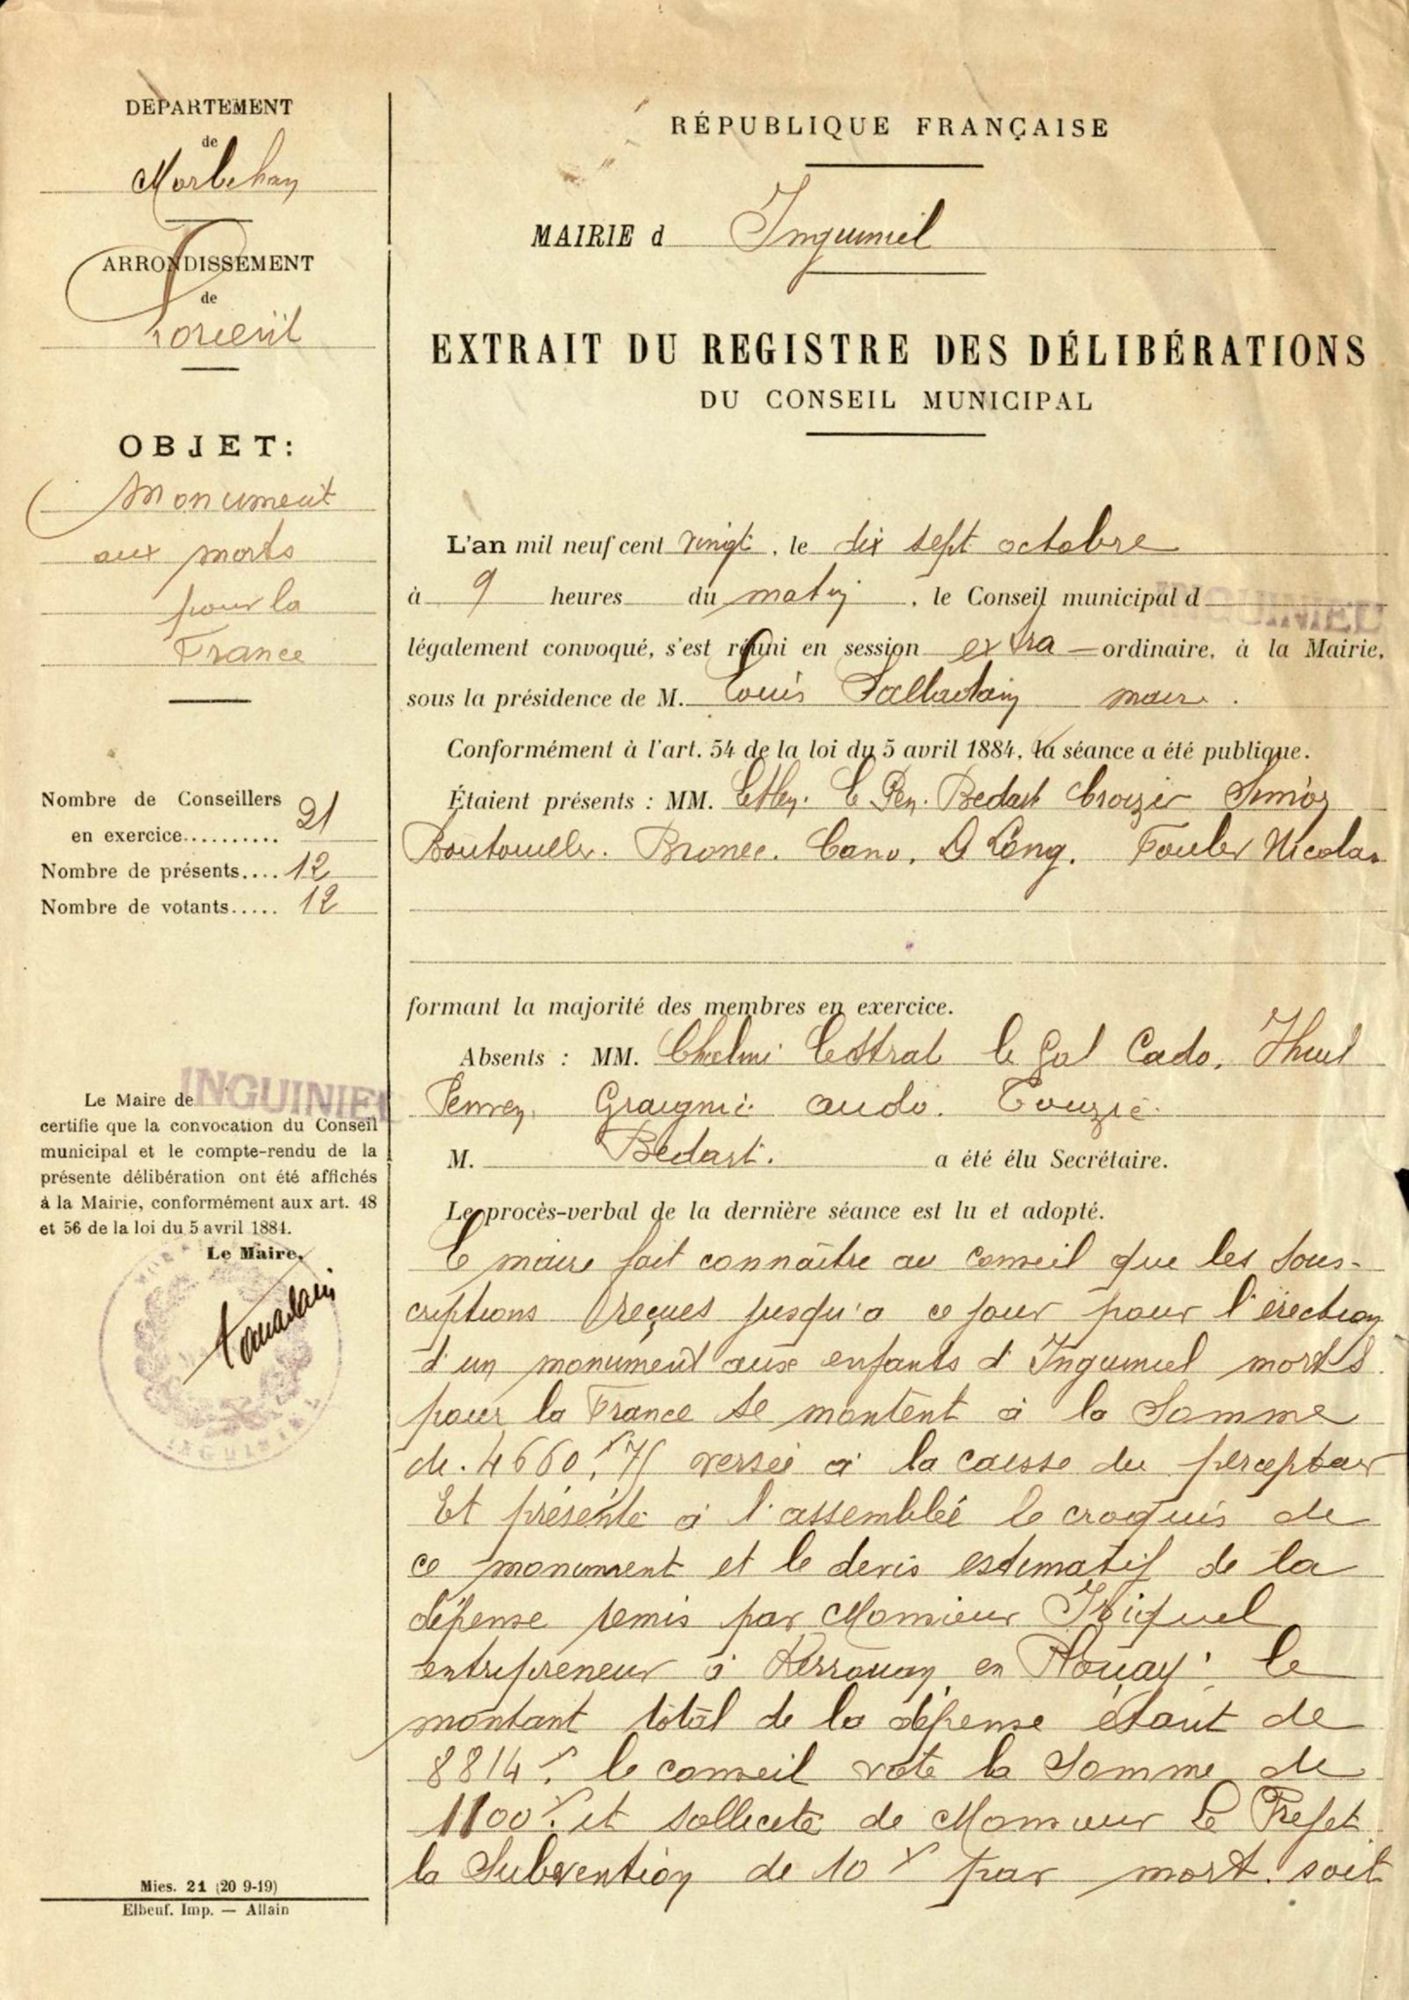 DEPARTEMENT
de
Morbihan
ARRONDISSEMENT
de
Lorient
OBJET:
Monument
aux morts
pour la
France
Nombre de Conseillers
en exercice.......... 21
Nombre de présents.... 12
Nombre de votants..... 12
Le Maire de INGUINIEL
certifie que la convocation du Conseil
municipal et le compte-rendu de la
présente délibération ont été affichés
à la Mairie, conformément aux art. 48
et 56 de la loi du 5 avril 1884.
Le Maire,
INGUINIEL
Mies. 21 (20 9-19)
Elbeuf. Imp. — Allain
RÉPUBLIQUE FRANÇAISE
MAIRIE d Inguiniel
EXTRAIT DU REGISTRE DES DÉLIBÉRATIONS
DU CONSEIL MUNICIPAL
L'an mil neuf cent vingt, le dix sept octobre
à 9 heures du matin, le Conseil municipal d INGUINIEL
légalement convoqué, s'est réuni en session extra-ordinaire, à la Mairie,
sous la présidence de M. Louis maire.
Conformément à l'art. 54 de la loi du 5 avril 1884, la séance a été publique.
Étaient présents : MM. Le Pen. Bedart Croizer
Boutouiller. Bronec. Cano. Le Long. Nicolas
formant la majorité des membres en exercice.
Absents : MM. Lestrat le Gal Cado.
audo. Touzic.
M. Bedart. a été élu Secrétaire.
Le procès-verbal de la dernière séance est lu et adopté.
Le maire fait connaître au conseil que les sous-
criptions reçues jusqu'a ce jour pour l'érection
d'un monument aux enfants d'Inguiniel morts
pour la France se montent à la somme
de 4660f,75 versée à la caisse du percepteur
Et présente à l'assemblée le croquis de
ce monument et le devis estimatif de la
dépense remis par Monsieur
entrepreneur à Kerrouan en Plouay. le
montant total de la dépense étant de
8814f. le conseil vote la somme de
1100f. et sollicite de Monsieur Le Préfet
la subvention de 10f par mort. soit